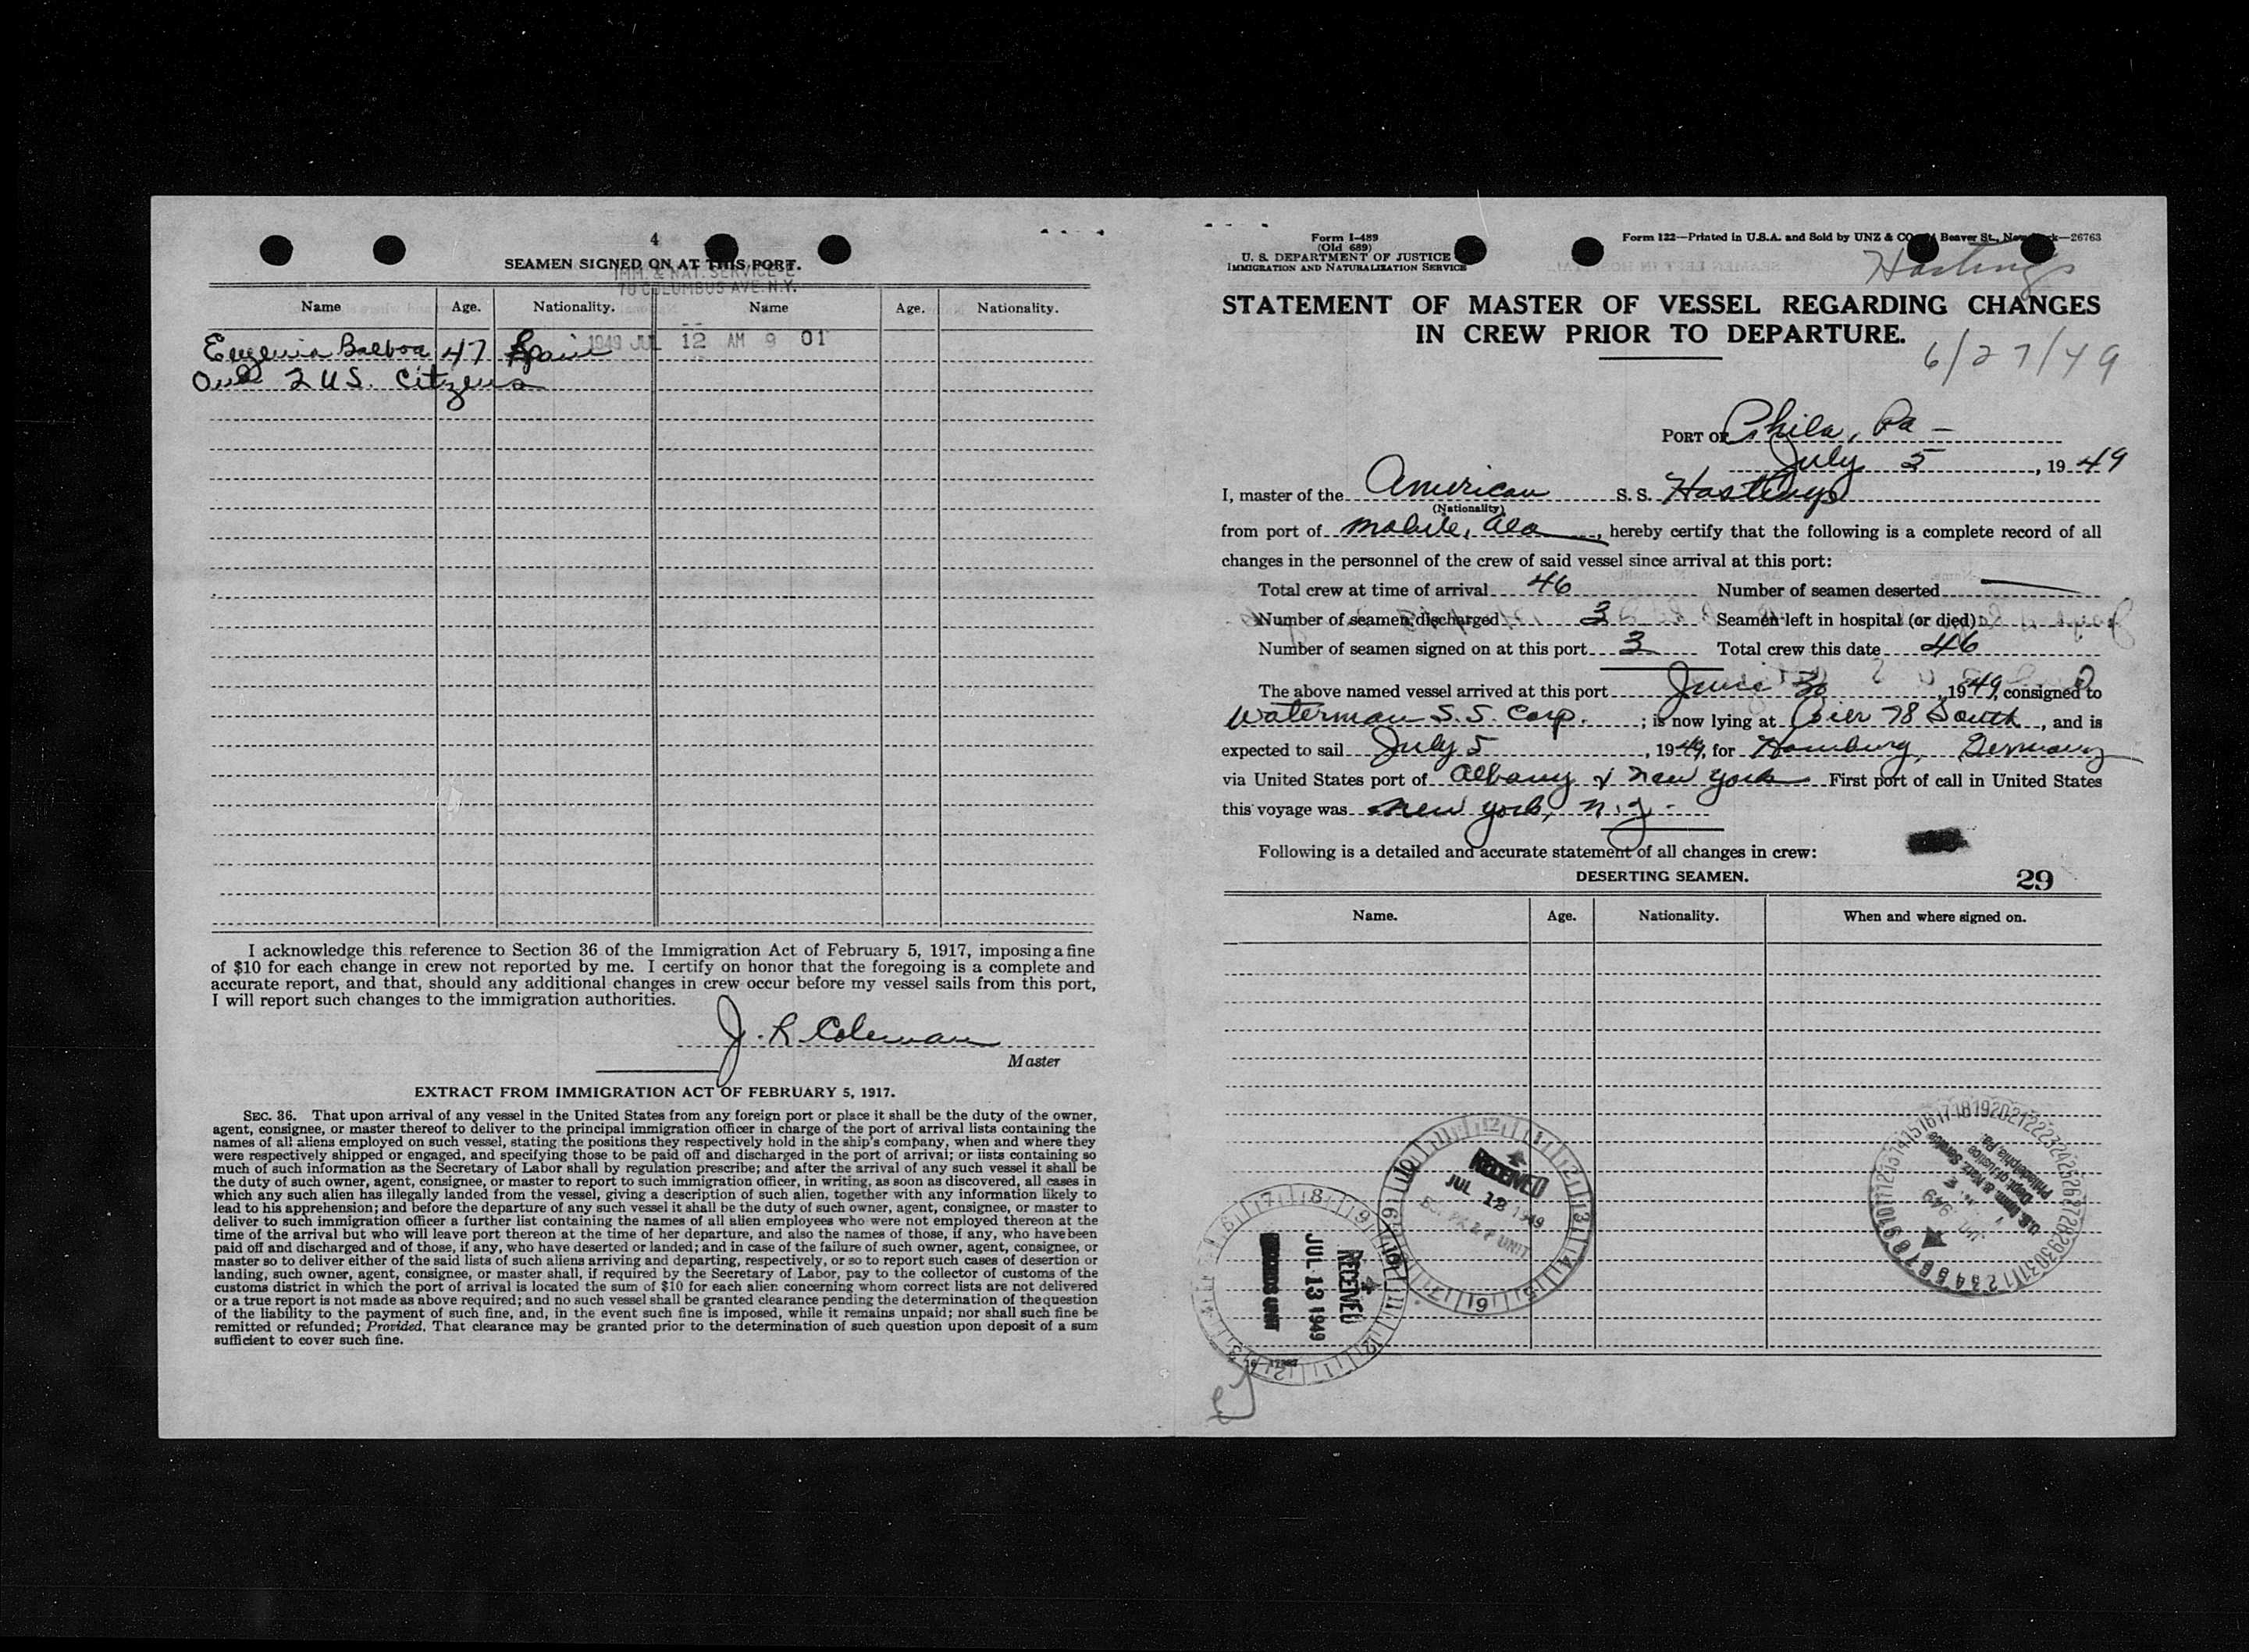 4
SEAMEN SIGNED ON AT THIS PORT.
IMM. & NAT. SERVICE
70 COLUMBUS AVE. N.Y.
Name Age. Nationality. Name Age. Nationality.
1949 JUL 12 AM 9 01
Balboa 47 Spain
2 U.S. Citizens
I acknowledge this reference to Section 36 of the Immigration Act of February 5, 1917, imposing a fine
of $10 for each change in crew not reported by me. I certify on honor that the foregoing is a complete and
accurate report, and that, should any additional changes in crew occur before my vessel sails from this port,
I will report such changes to the immigration authorities.
J. R. Coleman
Master
EXTRACT FROM IMMIGRATION ACT OF FEBRUARY 5, 1917.
SEC. 36. That upon arrival of any vessel in the United States from any foreign port or place it shall be the duty of the owner,
agent, consignee, or master thereof to deliver to the principal immigration officer in charge of the port of arrival lists containing the
names of all aliens employed on such vessel, stating the positions they respectively hold in the ship's company, when and where they
were respectively shipped or engaged, and specifying those to be paid off and discharged in the port of arrival; or lists containing so
much of such information as the Secretary of Labor shall by regulation prescribe; and after the arrival of any such vessel it shall be
the duty of such owner, agent, consignee, or master to report to such immigration officer, in writing, as soon as discovered, all cases in
which any such alien has illegally landed from the vessel, giving a description of such alien, together with any information likely to
lead to his apprehension; and before the departure of any such vessel it shall be the duty of such owner, agent, consignee, or master to
deliver to such immigration officer a further list containing the names of all alien employees who were not employed thereon at the
time of the arrival but who will leave port thereon at the time of her departure, and also the names of those, if any, who have been
paid off and discharged and of those, if any, who have deserted or landed; and in case of the failure of such owner, agent, consignee, or
master so to deliver either of the said lists of such aliens arriving and departing, respectively, or so to report such cases of desertion or
landing, such owner, agent, consignee, or master shall, if required by the Secretary of Labor, pay to the collector of customs of the
customs district in which the port of arrival is located the sum of $10 for each alien concerning whom correct lists are not delivered
or a true report is not made as above required; and no such vessel shall be granted clearance pending the determination of the question
of the liability to the payment of such fine, and, in the event such fine is imposed, while it remains unpaid; nor shall such fine be
remitted or refunded; Provided, That clearance may be granted prior to the determination of such question upon deposit of a sum
sufficient to cover such fine.
Form I-489
(Old 689)
U. S. DEPARTMENT OF JUSTICE
IMMIGRATION AND NATURALIZATION SERVICE
Form 122—Printed in U.S.A. and Sold by UNZ & CO. Beaver St., New York—26763
Hastings
STATEMENT OF MASTER OF VESSEL REGARDING CHANGES
IN CREW PRIOR TO DEPARTURE.
6/27/49
PORT OF Phila, Pa -
July 5, 1949
I, master of the American S. S. Hastings
(Nationality)
from port of Mobile, Ala, hereby certify that the following is a complete record of all
changes in the personnel of the crew of said vessel since arrival at this port:
Total crew at time of arrival 46 Number of seamen deserted —
Number of seamen discharged 3 Seamen left in hospital (or died)
Number of seamen signed on at this port 3 Total crew this date 46
The above named vessel arrived at this port June 30, 1949, consigned to
Waterman S.S. Corp. ; is now lying at Pier 78 South, and is
expected to sail July 5, 1949, for Hamburg, Germany
via United States port of Albany & New York First port of call in United States
this voyage was New York, N.Y. -
Following is a detailed and accurate statement of all changes in crew:
DESERTING SEAMEN.
29
Name. Age. Nationality. When and where signed on.
RECEIVED
JUL 1949
RECEIVED
JUL 13 1949
RECORDS UNIT
U.S. Imm. & Natz. Service
Dept. of Justice
Philadelphia, Pa.